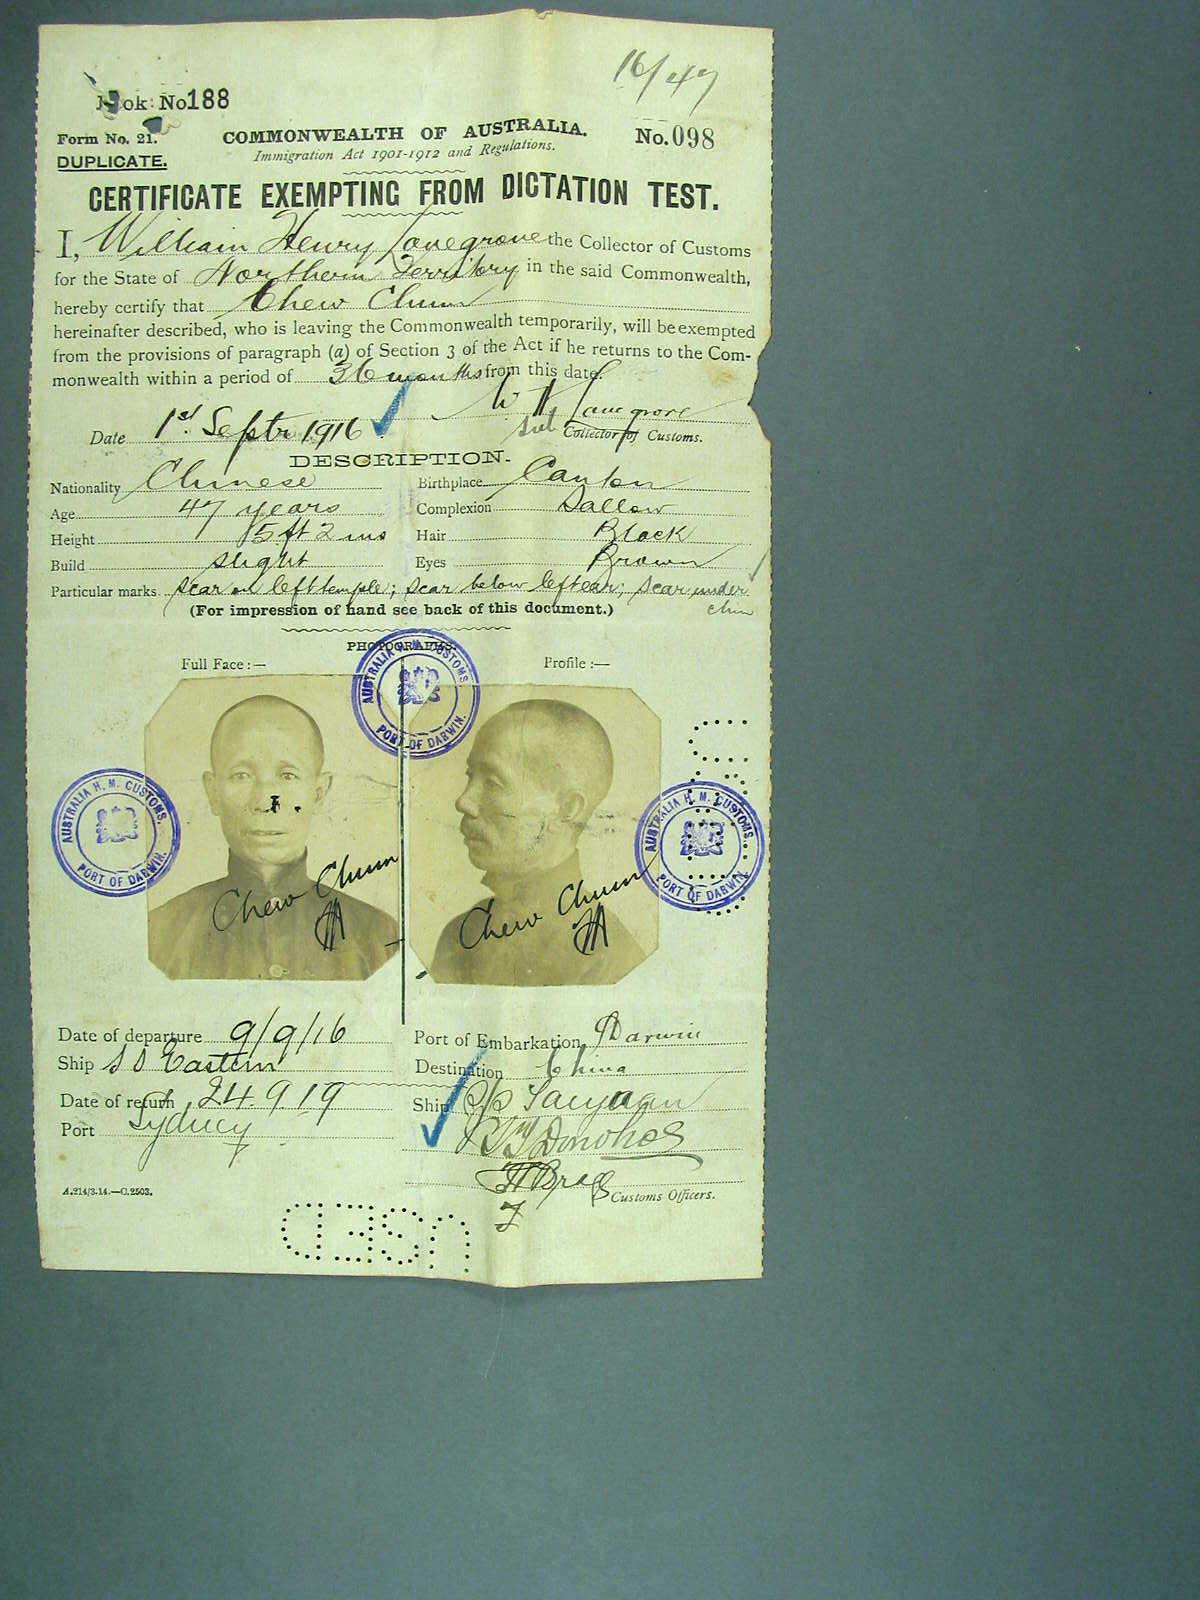 16/47
Book No 188
Form No. 21. COMMONWEALTH OF AUSTRALIA. No. 098
DUPLICATE. Immigration Act 1901-1912 and Regulations.
CERTIFICATE EXEMPTING FROM DICTATION TEST.
I, William Henry Lovegrove the Collector of Customs
for the State of Northern Territory in the said Commonwealth,
hereby certify that Chew Chun
hereinafter described, who is leaving the Commonwealth temporarily, will be exempted
from the provisions of paragraph (a) of Section 3 of the Act if he returns to the Com-
monwealth within a period of 36 months from this date.
W H Lovegrove
Date 1st. Septr 1916 Sub Collector of Customs.
DESCRIPTION.
Nationality Chinese Birthplace Canton
Age 47 years Complexion Sallow
Height 5 ft 2 ins Hair Black
Build slight Eyes Brown
Particular marks scar on left temple; scar below left ear; scar under chin
(For impression of hand see back of this document.)
PHOTOGRAPHS.
Full Face :— Profile :—
AUSTRALIA H. M. CUSTOMS. PORT OF DARWIN.
AUSTRALIA H. M. CUSTOMS. PORT OF DARWIN.
AUSTRALIA H. M. CUSTOMS. PORT OF DARWIN.
Chew Chum
Chew Chum
Date of departure 9/9/16 Port of Embarkation Darwin
Ship SS Eastern Destination China
Date of return 24.9.19 Ship Taiyuan
Port Sydney
Customs Officers.
A.214/3.14.—C.2503.
USED